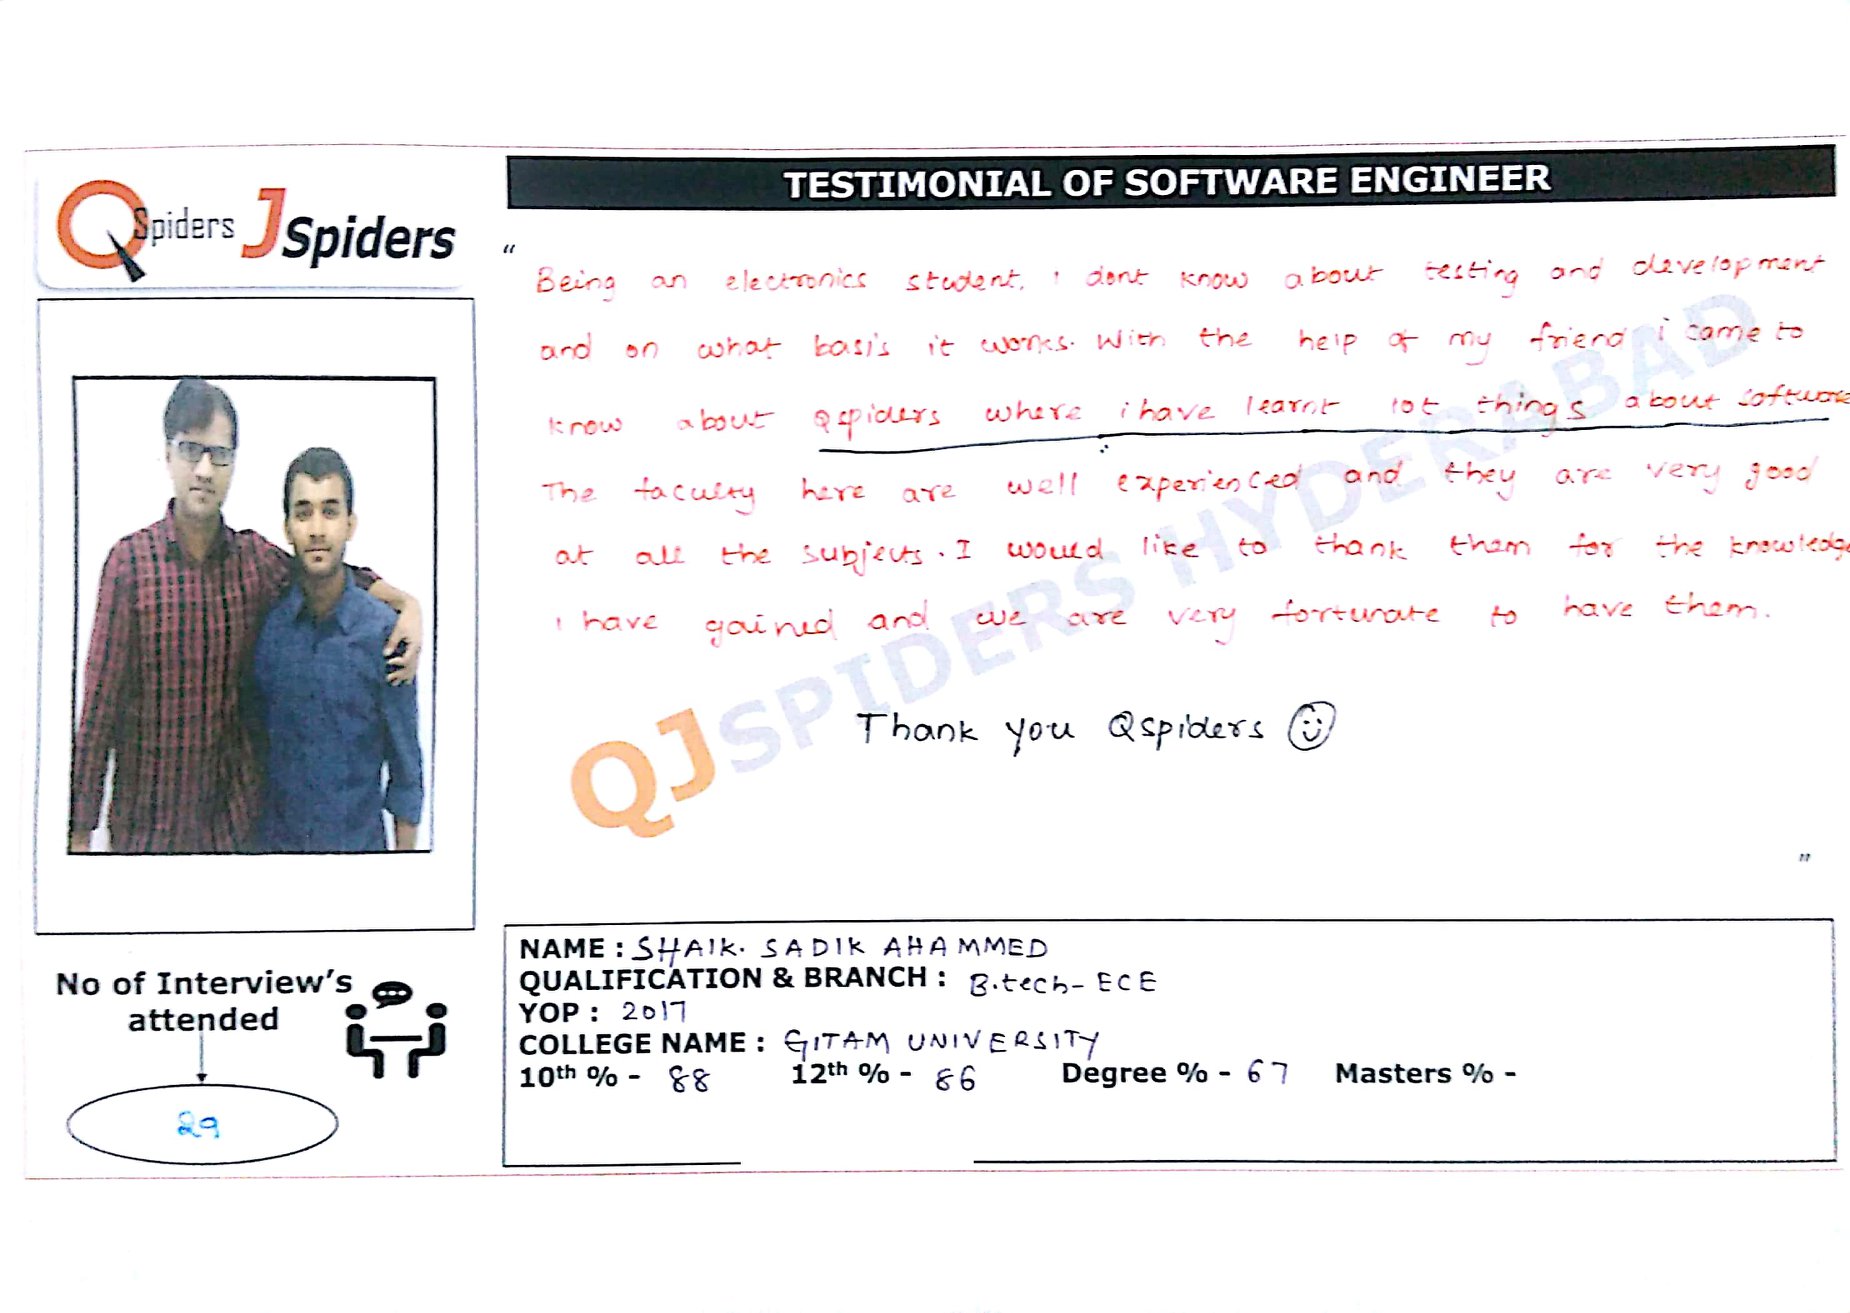 QSpiders JSpiders
TESTIMONIAL OF SOFTWARE ENGINEER
"
Being an electronics student, I dont know about testing and development
and on what basis it works. With the help of my friend i came to
know about Qspiders where i have learnt lot things about software
The faculty here are well experienced and they are very good
at all the subjects. I would like to thank them for the knowledge
I have gained and we are very fortunate to have them.
Thank you Qspiders
QJSPIDERS HYDERABAD
"
No of Interview's
attended
29
NAME : SHAIK. SADIK AHAMMED
QUALIFICATION & BRANCH : B.tech- ECE
YOP : 2017
COLLEGE NAME : GITAM UNIVERSITY
10th % - 88 12th % - 86 Degree % - 67 Masters % -